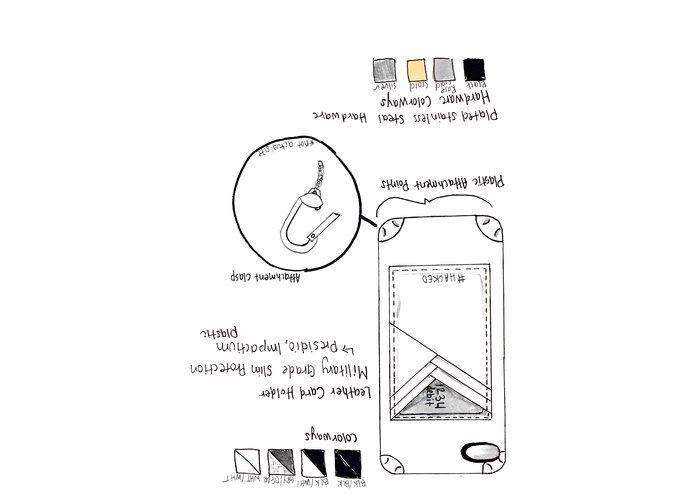 BLK/BLK BLK/WHT WHT/WHT
Colorways
1234
Debit
Leather Card Holder
Military Grade Slim Protection
↳ Presidio, Impactium
Plastic
#HACKED
Attachment Clasp
*not actual
Plastic Attachment Points
Plated stainless Steal Hardware
Hardware Colorways
Black Rose Gold Gold Silver